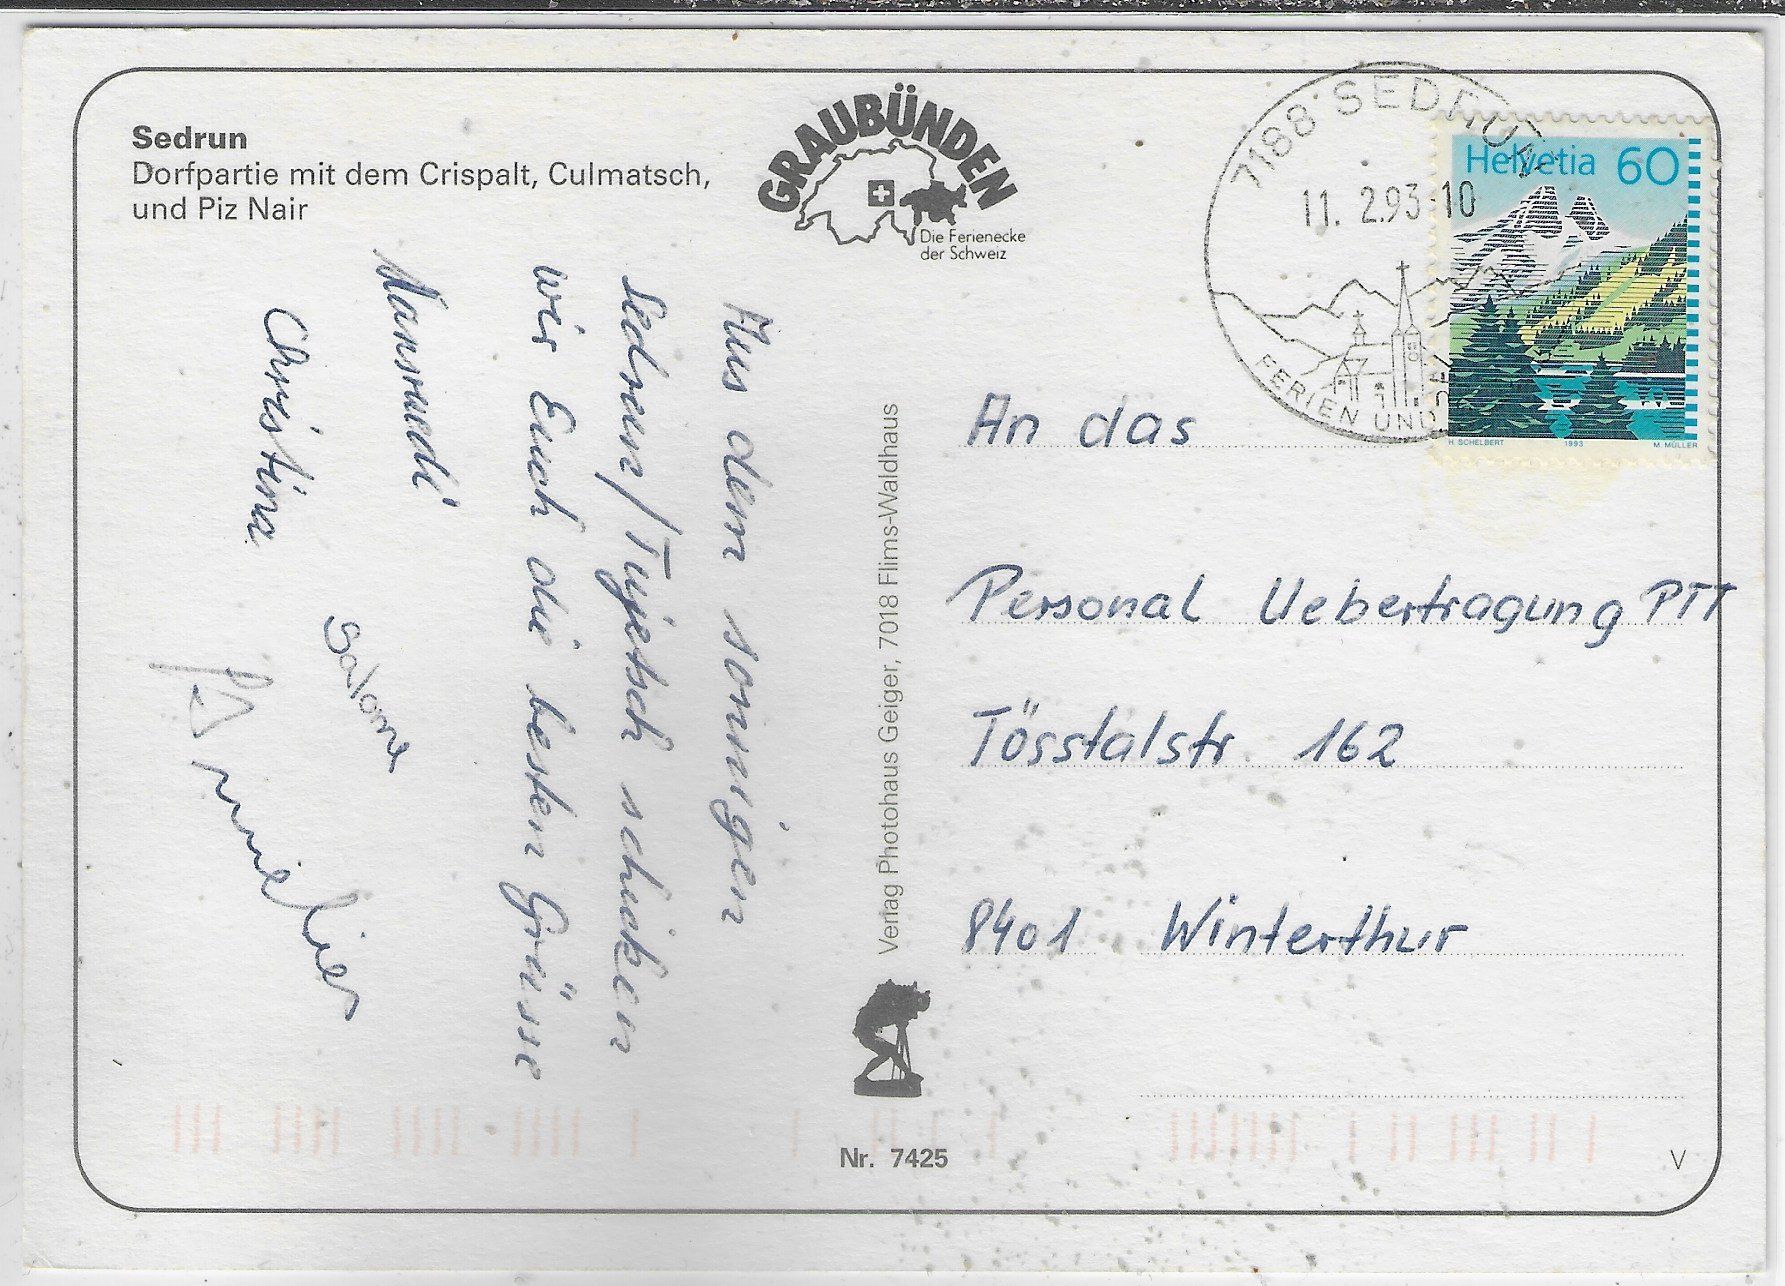 Sedrun
Dorfpartie mit dem Crispalt, Culmatsch,
und Piz Nair
GRAUBÜNDEN
Die Ferienecke
der Schweiz
7188 SEDRUN
11. 2.93-10
FERIEN UND
Helvetia 60
H. SCHELBERT 1993 M. MÜLLER
Aus dem sonnigen
Sedrun/Tujetsch schicken
wir Euch die besten Grüsse
Hansruedi
Christina
Salome
Verlag Photohaus Geiger, 7018 Flims-Waldhaus
An das
Personal Uebertragung PTT
Tösstalstr. 162
8401 Winterthur
Nr. 7425
V